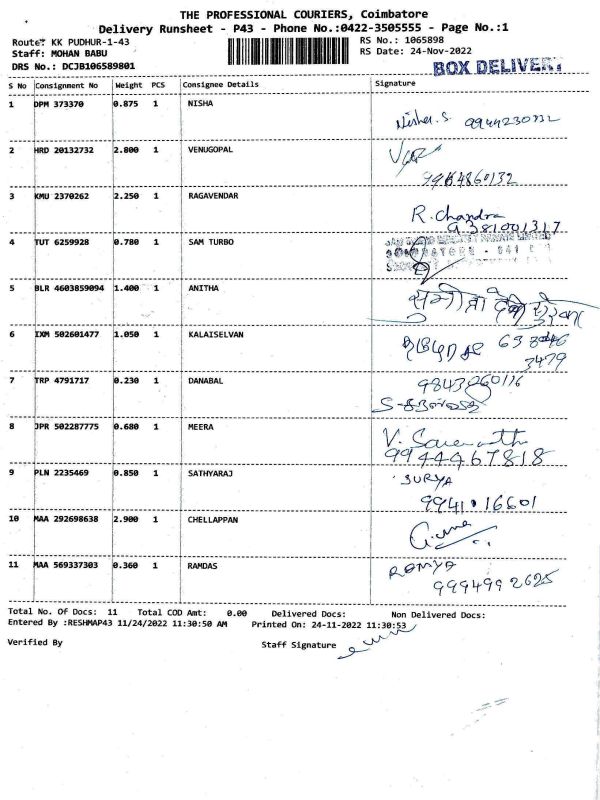 THE PROFESSIONAL COURIERS, Coimbatore
Delivery Runsheet - P43 - Phone No.:0422-3505555 - Page No.:1
Route: KK PUDHUR-1-43 RS No.: 1065898
Staff: MOHAN BABU RS Date: 24-Nov-2022
DRS No.: DCJB106589801 BOX DELIVERY
S No Consignment No Weight PCS Consignee Details Signature
1 DPM 373370 0.875 1 NISHA
Nisha.S
2 HRD 20132732 2.800 1 VENUGOPAL
3 KMU 2370262 2.250 1 RAGAVENDAR
R. Chandra
9381001317
4 TUT 6259928 0.780 1 SAM TURBO
5 BLR 4603859094 1.400 1 ANITHA
6 IXM 502601477 1.050 1 KALAISELVAN
3479
7 TRP 4791717 0.230 1 DANABAL
8 JPR 502287775 0.680 1 MEERA
V.
9944467818
9 PLN 2235469 0.850 1 SATHYARAJ
SURYA
9941016601
10 MAA 292698638 2.900 1 CHELLAPPAN
11 MAA 569337303 0.360 1 RAMDAS
RAMYA
9994992625
Total No. Of Docs: 11 Total COD Amt: 0.00 Delivered Docs: Non Delivered Docs:
Entered By :RESHMAP43 11/24/2022 11:30:50 AM Printed On: 24-11-2022 11:30:53
Verified By Staff Signature